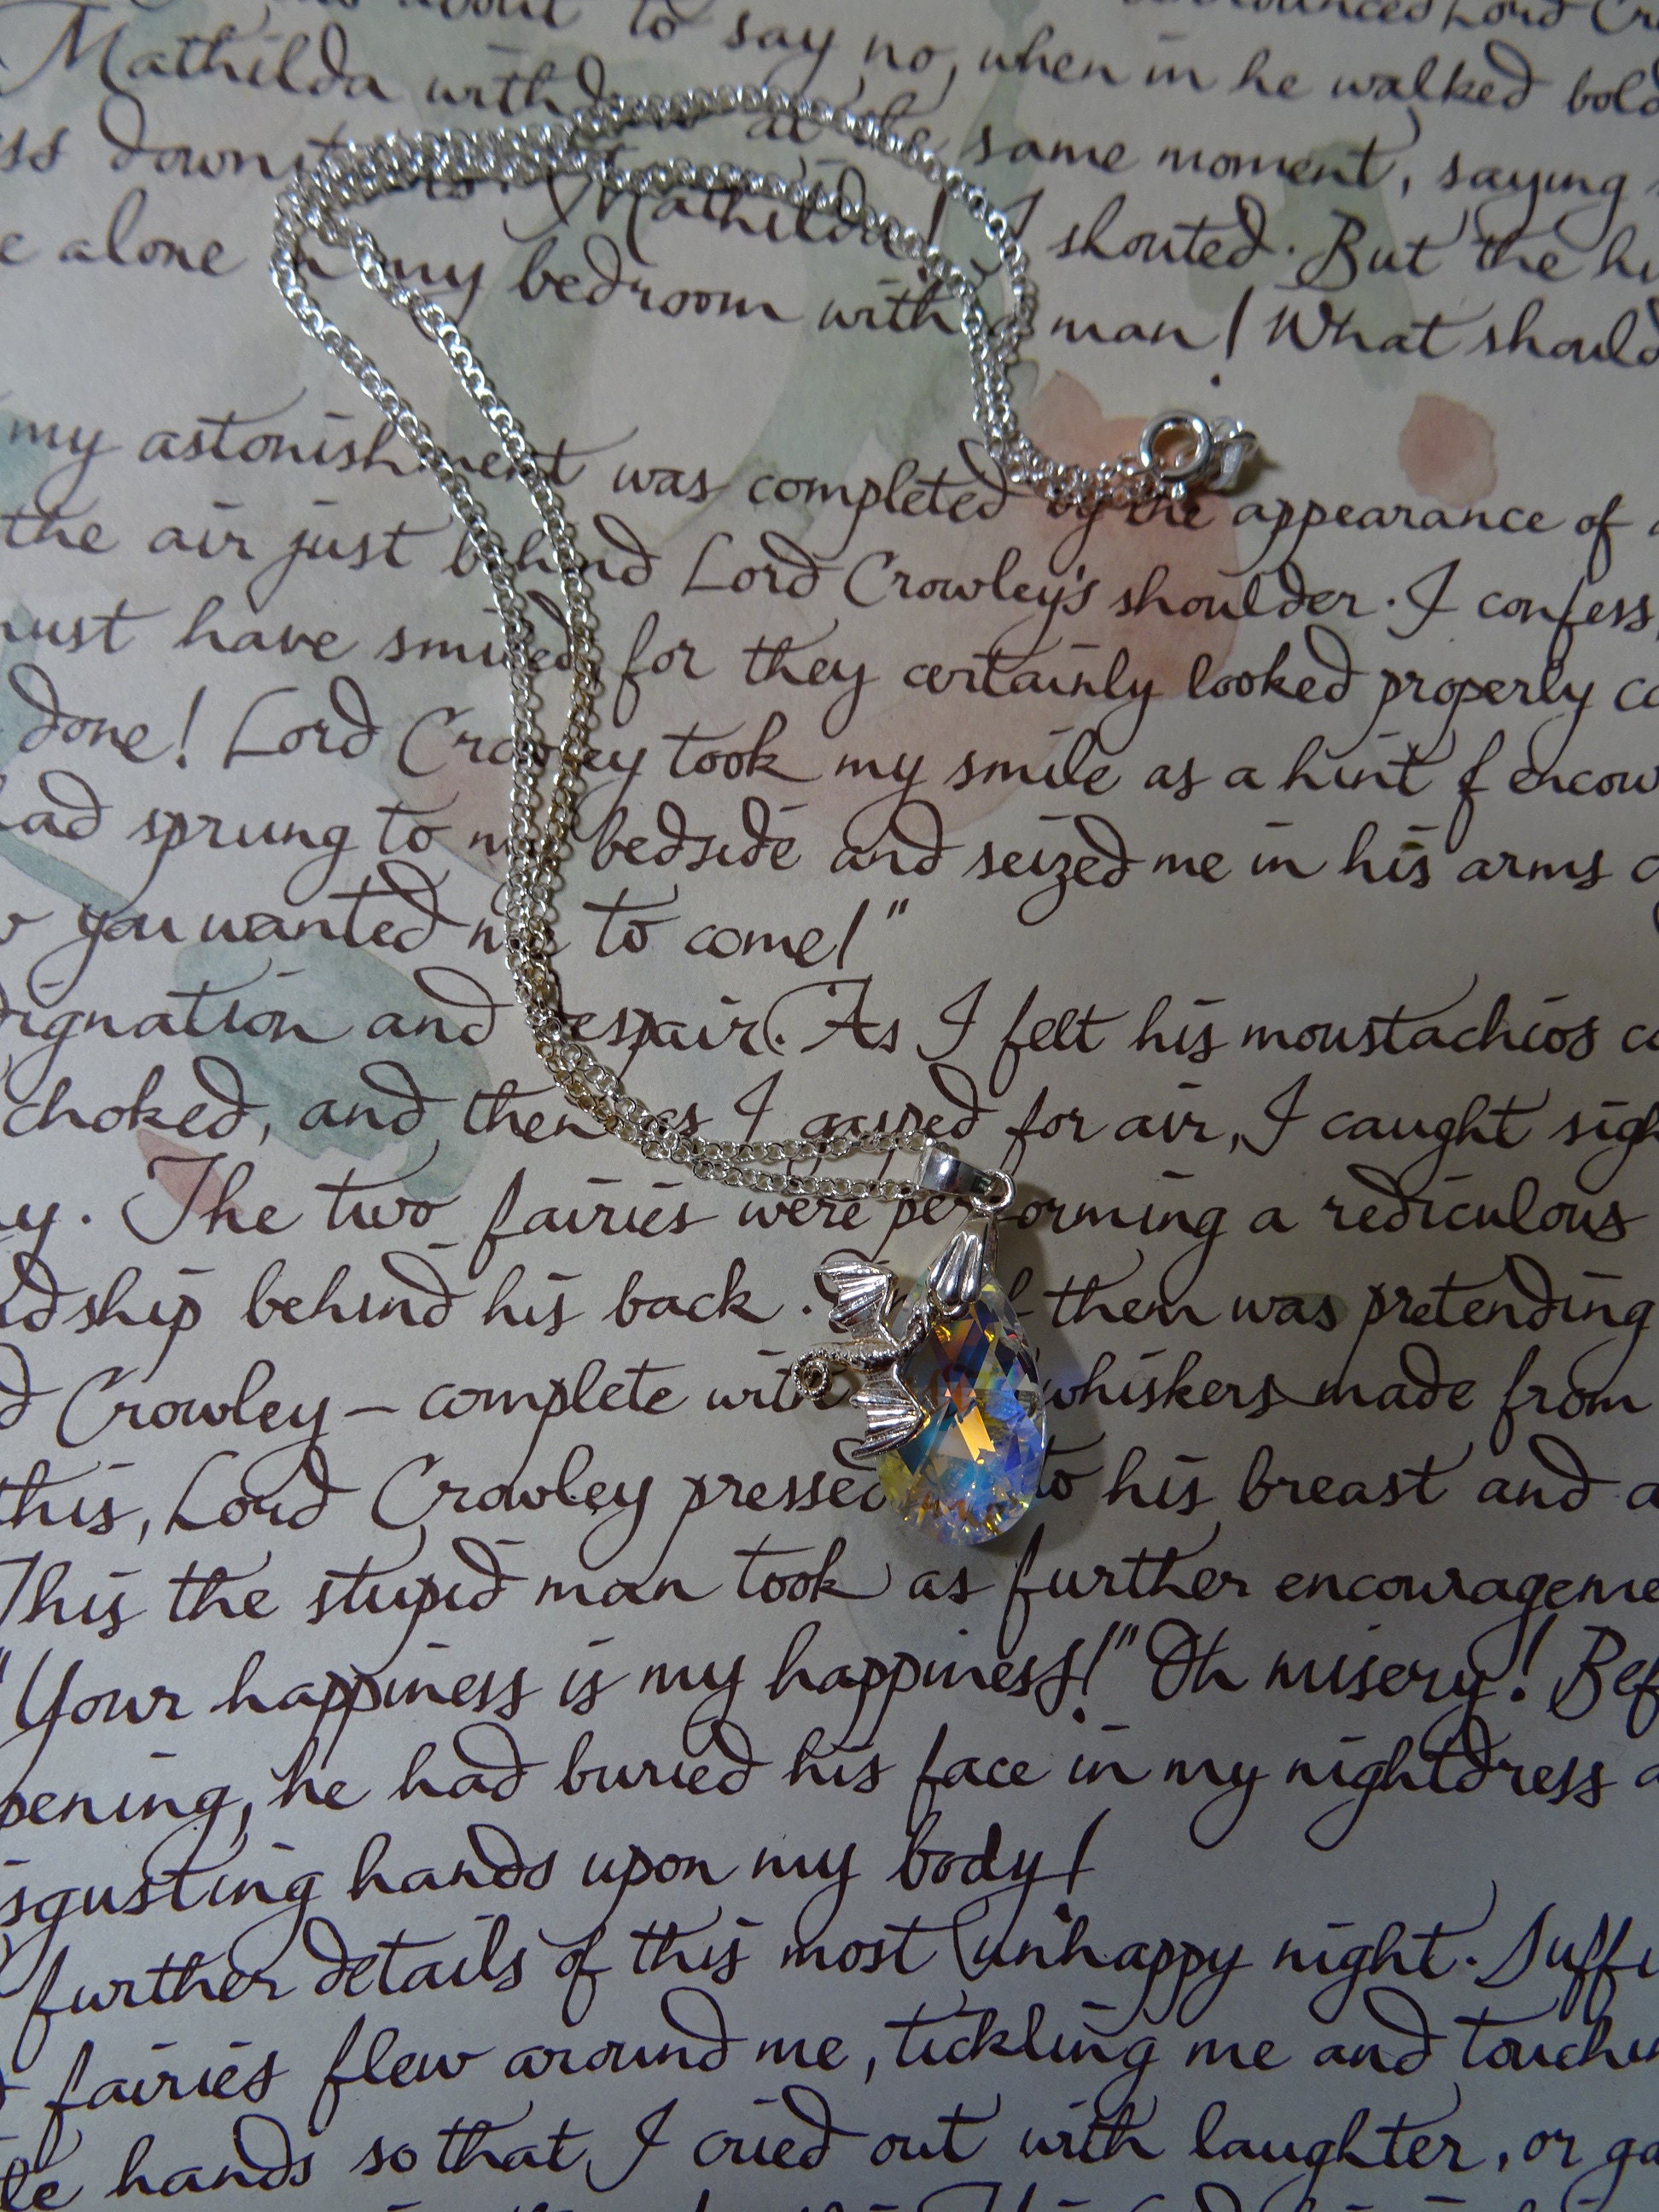 about to say no, when in he walked
Mathilda with at the same moment, saying
to Mathilda! I shouted. But the
alone in my bedroom with a man! What should
my astonishment was completed by the appearance of
the air just behind Lord Crowley's shoulder. I confess,
have smiled, for they certainly looked properly
done! Lord Crowley took my smile as a hint of
sprung to my bedside and seized me in his arms
you wanted me to come!"
and despair. As I felt his moustachios
choked, and then as I gasped for air, I caught
The two fairies were performing a rediculous
behind his back. One of them was pretending
Crowley – complete with whiskers made from
this, Lord Crowley pressed to his breast and
This the stupid man took as further
"Your happiness is my happiness!" Oh misery!
he had buried his face in my nightdress
hands upon my body!
further details of this most unhappy night.
fairies flew around me, tickling me and
hands so that I cried out with laughter, or